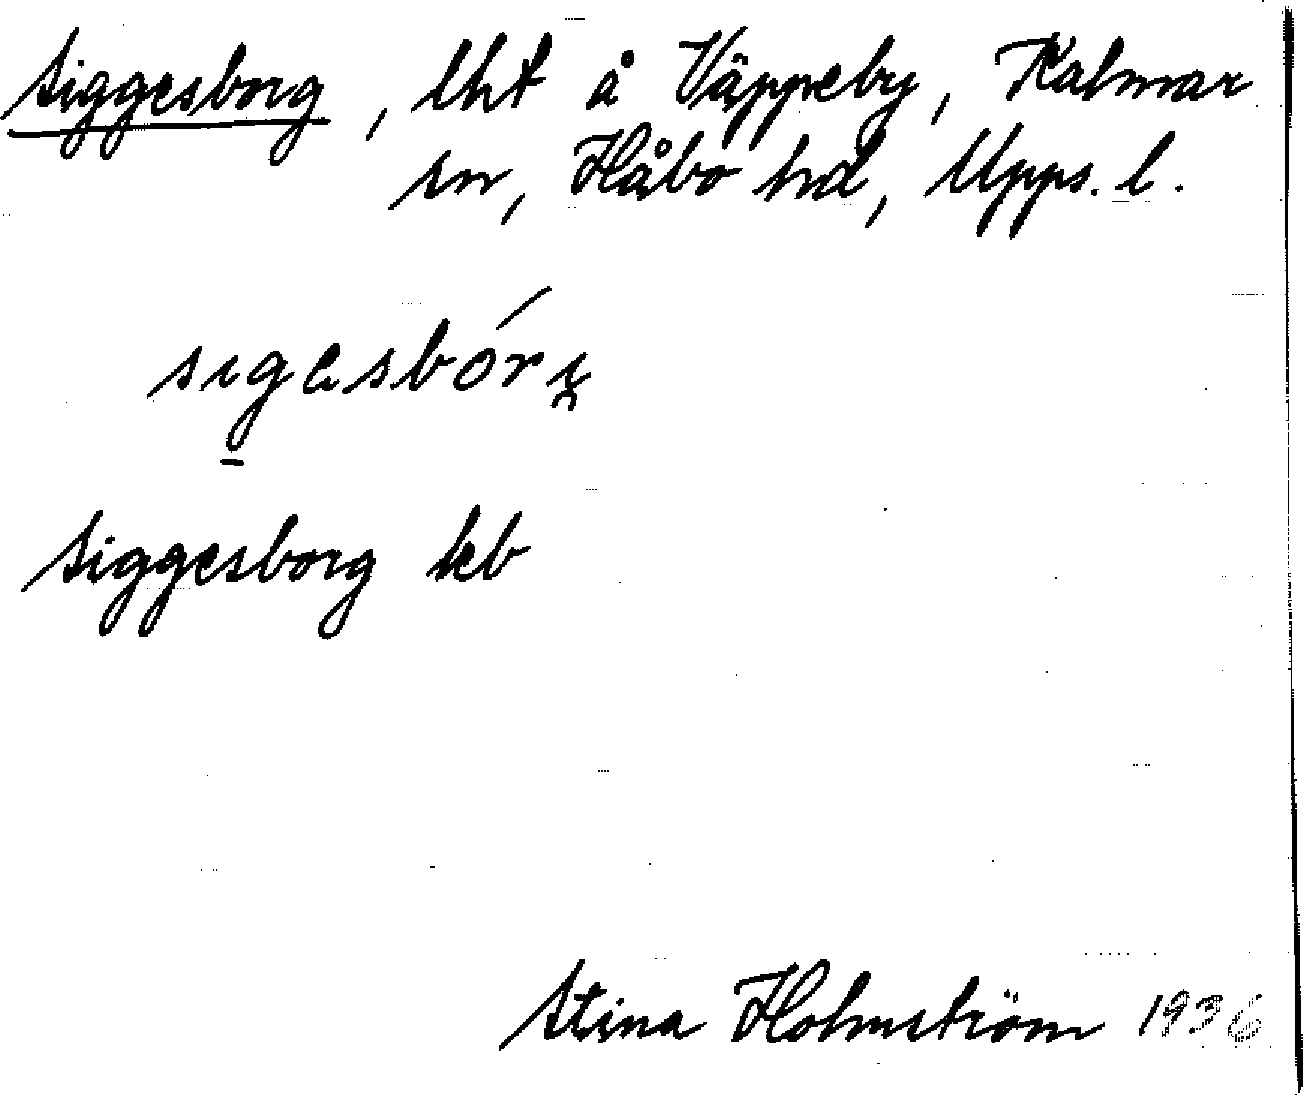 Siggesborg, lht å Väppeby, Kalmar
sn, Håbo hd, Upps. l.
Siggesborg kb
Stina Holmström 1936